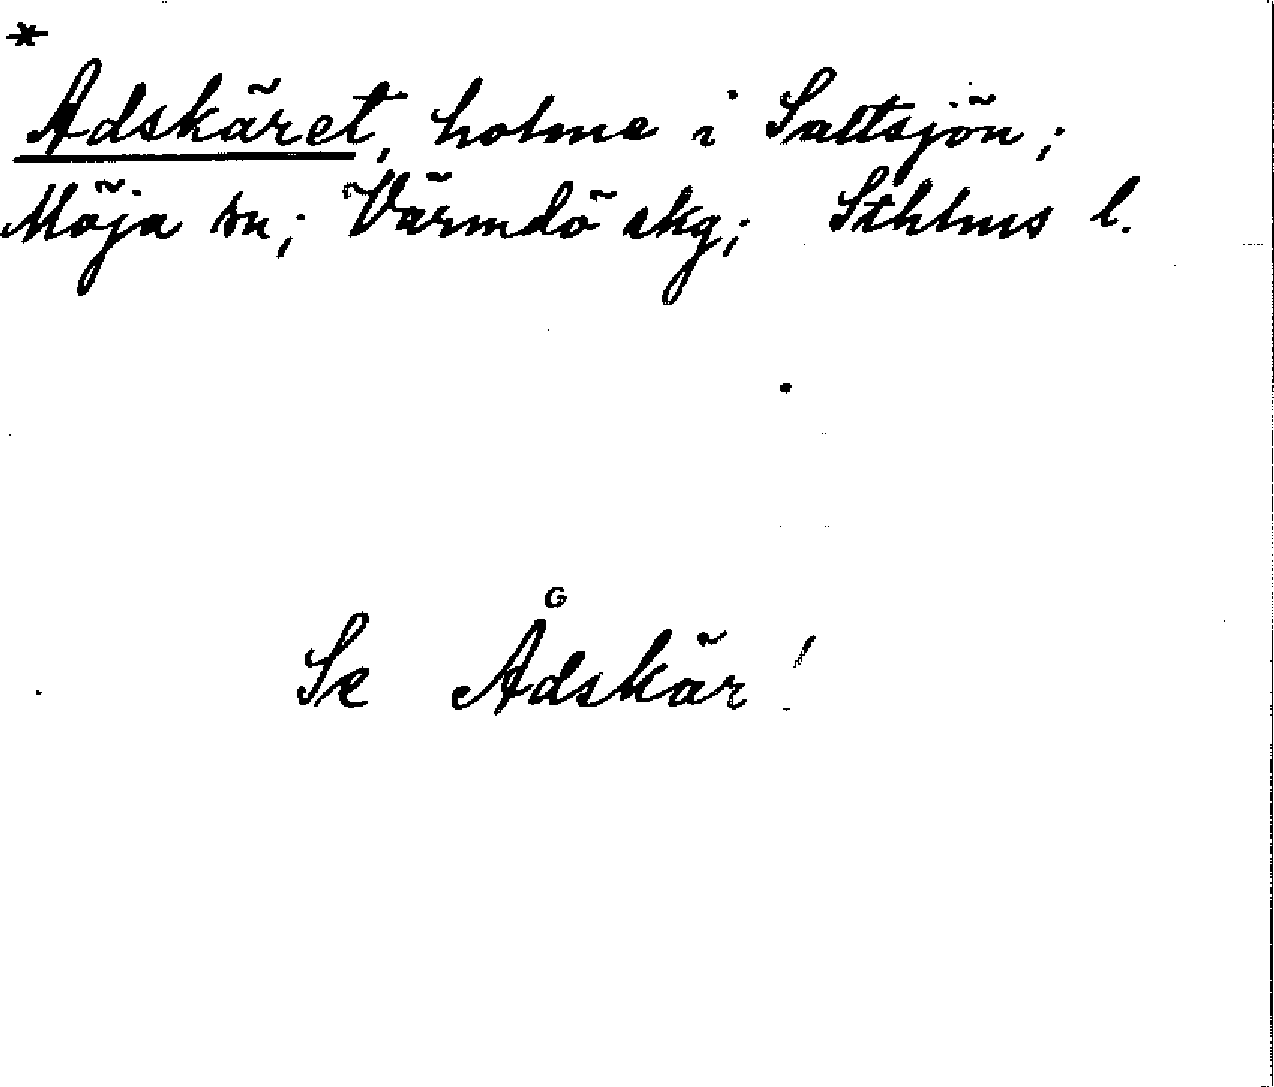 *
Adskäret, holme i Saltsjön;
Möja sn; Värmdö skg; Sthlms l.
Se Ådskär!